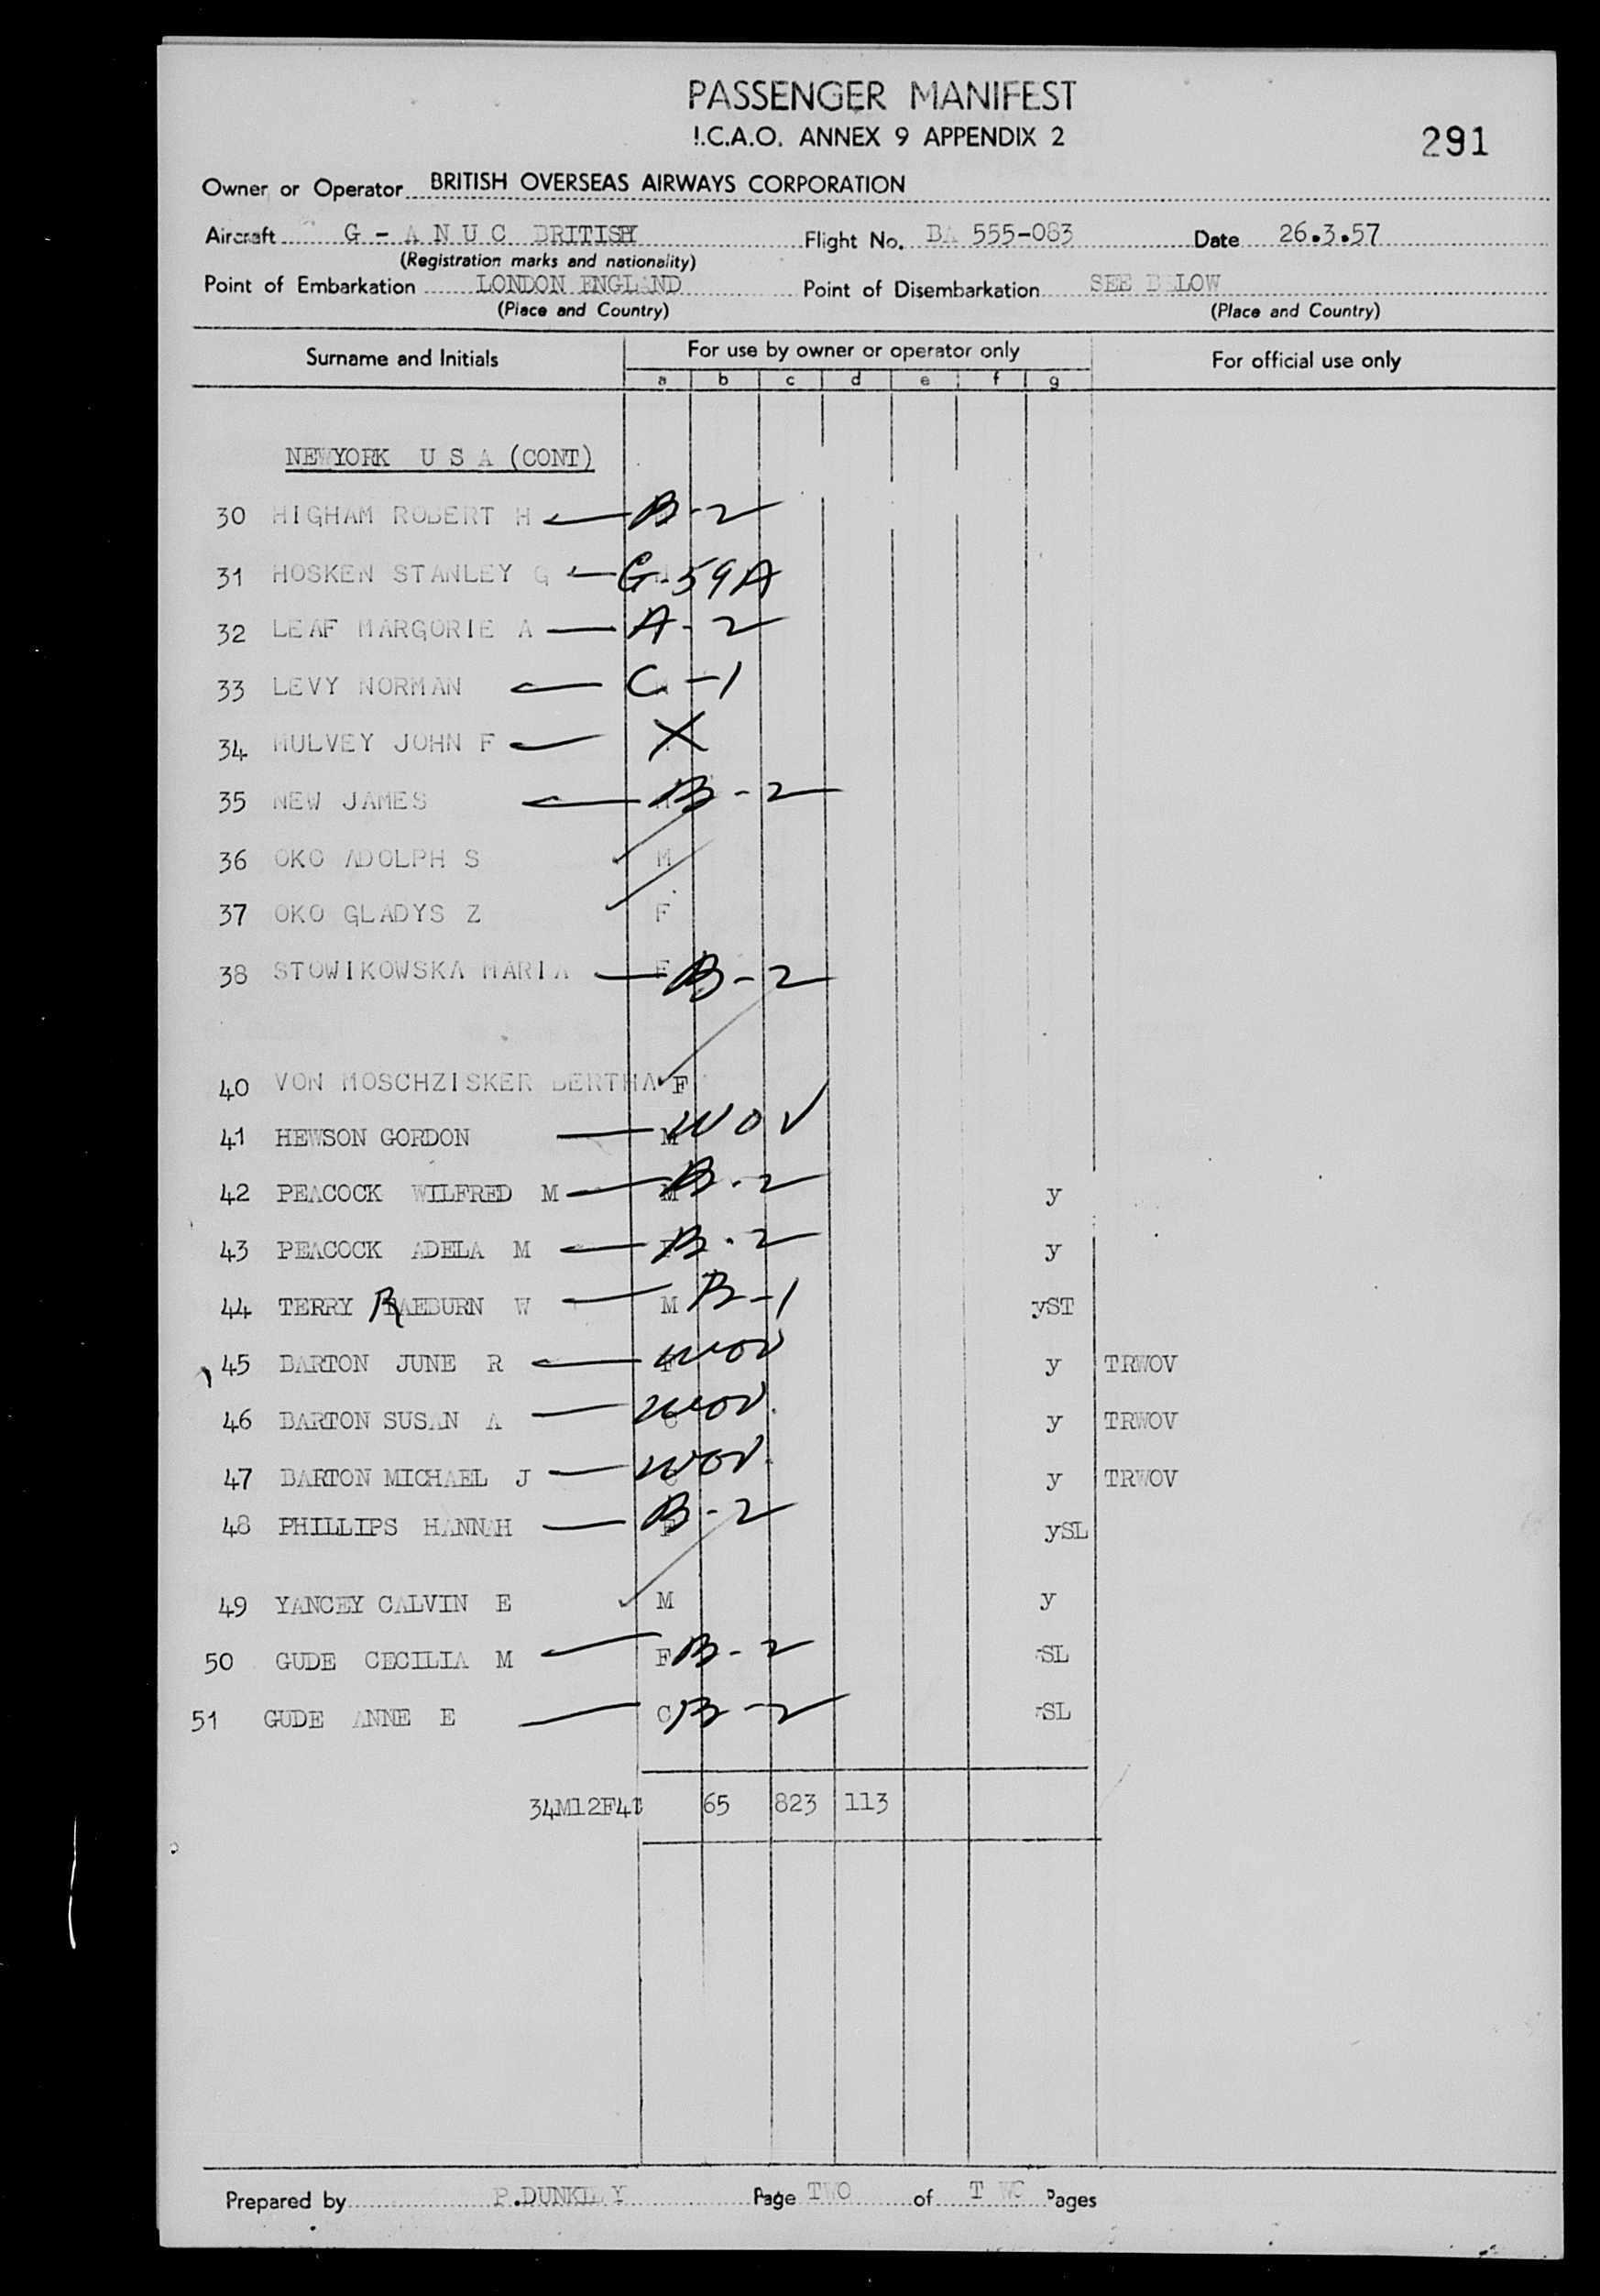 PASSENGER MANIFEST
I.C.A.O. ANNEX 9 APPENDIX 2
291
Owner or Operator BRITISH OVERSEAS AIRWAYS CORPORATION
Aircraft G - A N U C BRITISH Flight No. BA 555-083 Date 26.3.57
(Registration marks and nationality)
Point of Embarkation LONDON ENGLAND Point of Disembarkation SEE BELOW
(Place and Country) (Place and Country)
Surname and Initials For use by owner or operator only For official use only
a b c d e f g
NEWYORK U S A (CONT)
30 HIGHAM ROBERT H B-2
31 HOSKEN STANLEY G G-59A
32 LEAF MARGORIE A A-2
33 LEVY NORMAN C-1
34 MULVEY JOHN F X
35 NEW JAMES B-2
36 OKO ADOLPH S M
37 OKO GLADYS Z F
38 STOWIKOWSKA MARIA F B-2
40 VON MOSCHZISKER BERTHA F
41 HEWSON GORDON M WOV
42 PEACOCK WILFRED M M B-2 y
43 PEACOCK ADELA M B-2 y
44 TERRY RAEBURN W M B-1 yST
45 BARTON JUNE R WOV y TRWOV
46 BARTON SUSAN A C WOV y TRWOV
47 BARTON MICHAEL J WOV y TRWOV
48 PHILLIPS HANNAH F B-2 ySL
49 YANCEY CALVIN E M y
50 GUDE CECILIA M F B-2 SL
51 GUDE ANNE E C B-2 SL
34M12F4 65 823 113
Prepared by P.DUNKLEY Page TWO of T WO Pages